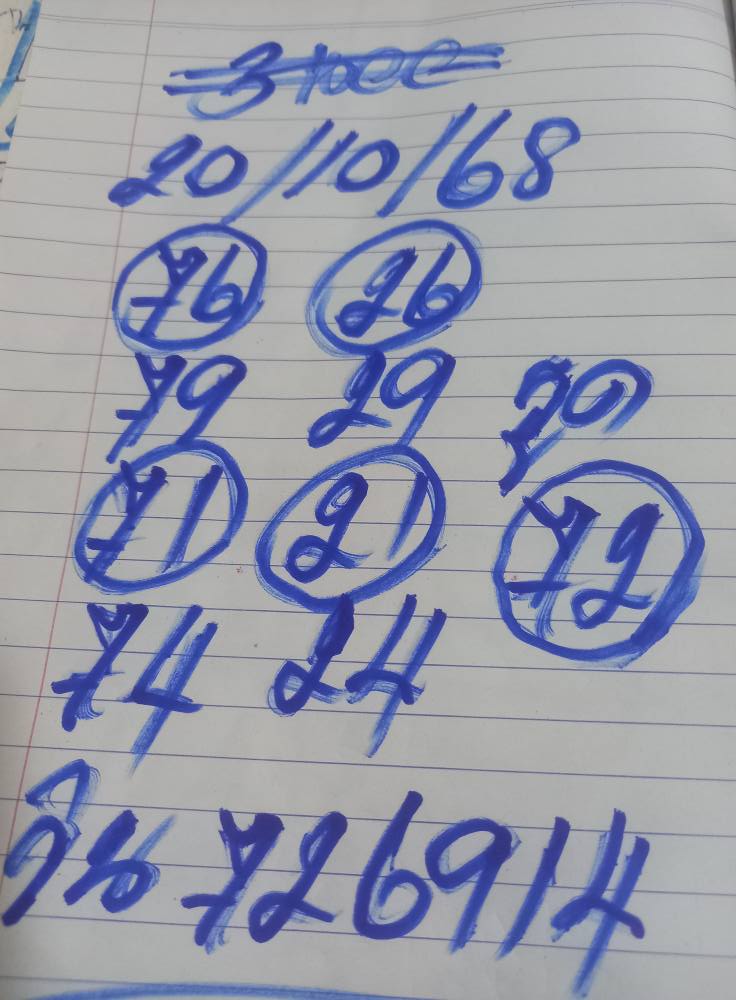 20/10/68
76 26
79 29 รูด
71 21 72
74 24
วิน 726914